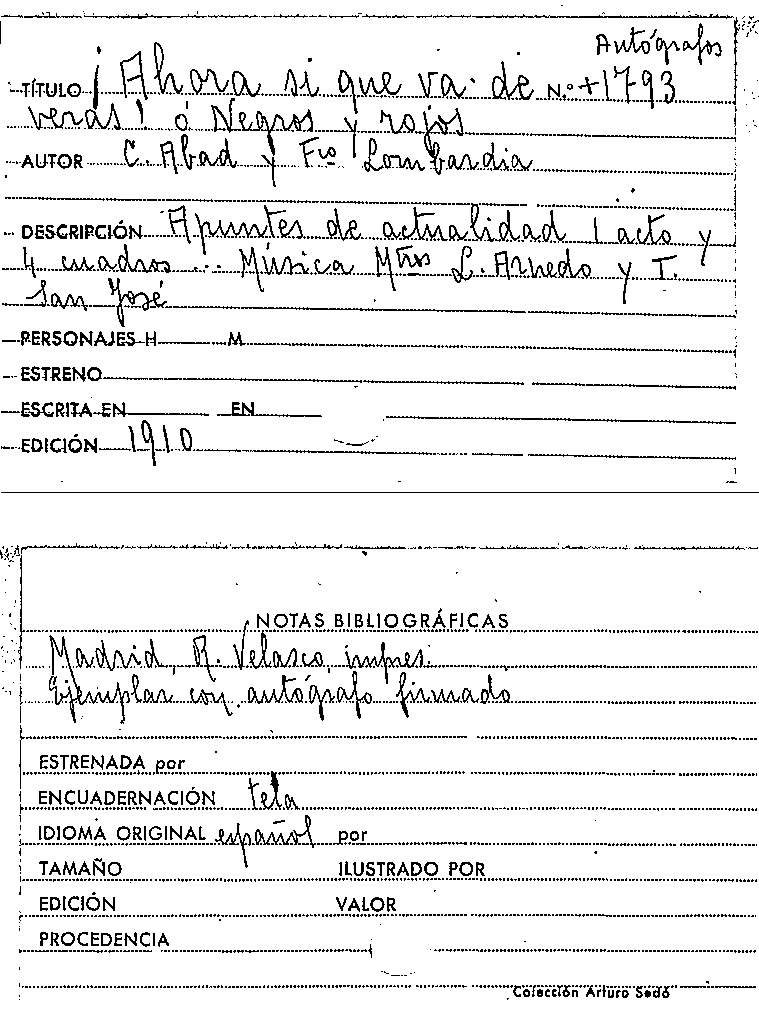 Autógrafos
TÍTULO ¡Ahora si que va de N.º +1793
veras! ó Negros y rojos
AUTOR C. Abad y Fco Lombardia
DESCRIPCIÓN Apuntes de actualidad 1 acto y
4 cuadros... Música Mtros L. Arnedo y T.
San José
PERSONAJES H M
ESTRENO
ESCRITA EN EN
EDICIÓN 1910
NOTAS BIBLIOGRÁFICAS
Madrid, R. Velasco, impres.
Ejemplar con autógrafo firmado
ESTRENADA por
ENCUADERNACIÓN tela
IDIOMA ORIGINAL español por
TAMAÑO ILUSTRADO POR
EDICIÓN VALOR
PROCEDENCIA
Colección Arturo Sedó